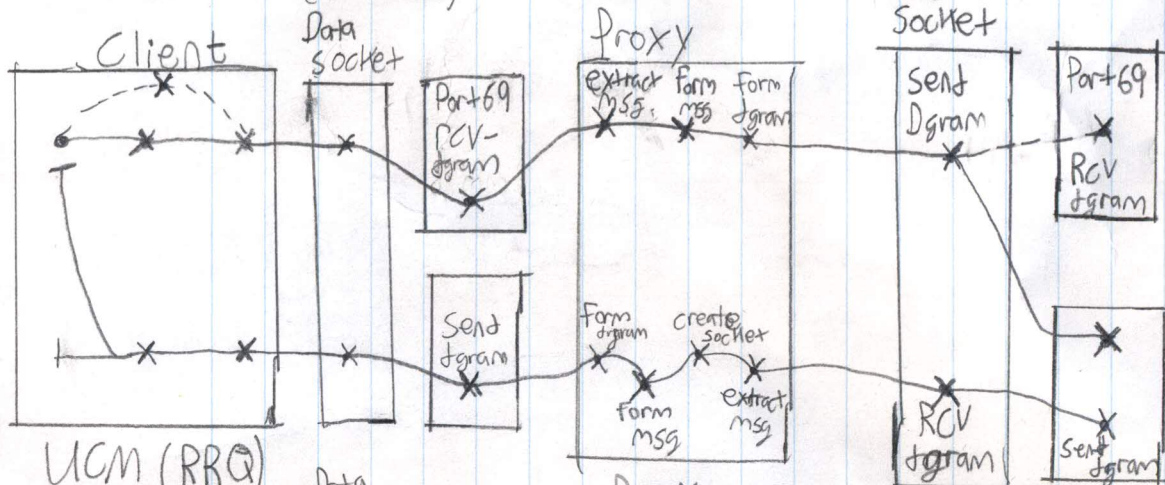 Client
Data
socket
Port 69
RCV-
dgram
Proxy
extract
msg.
form
msg
form
dgram
Socket
send
Dgram
Port 69
RCV
dgram
Send
dgram
form
dgram
create
socket
form
msg
extract
msg
RCV
dgram
sent
dgram
UCM (RRQ)
Data